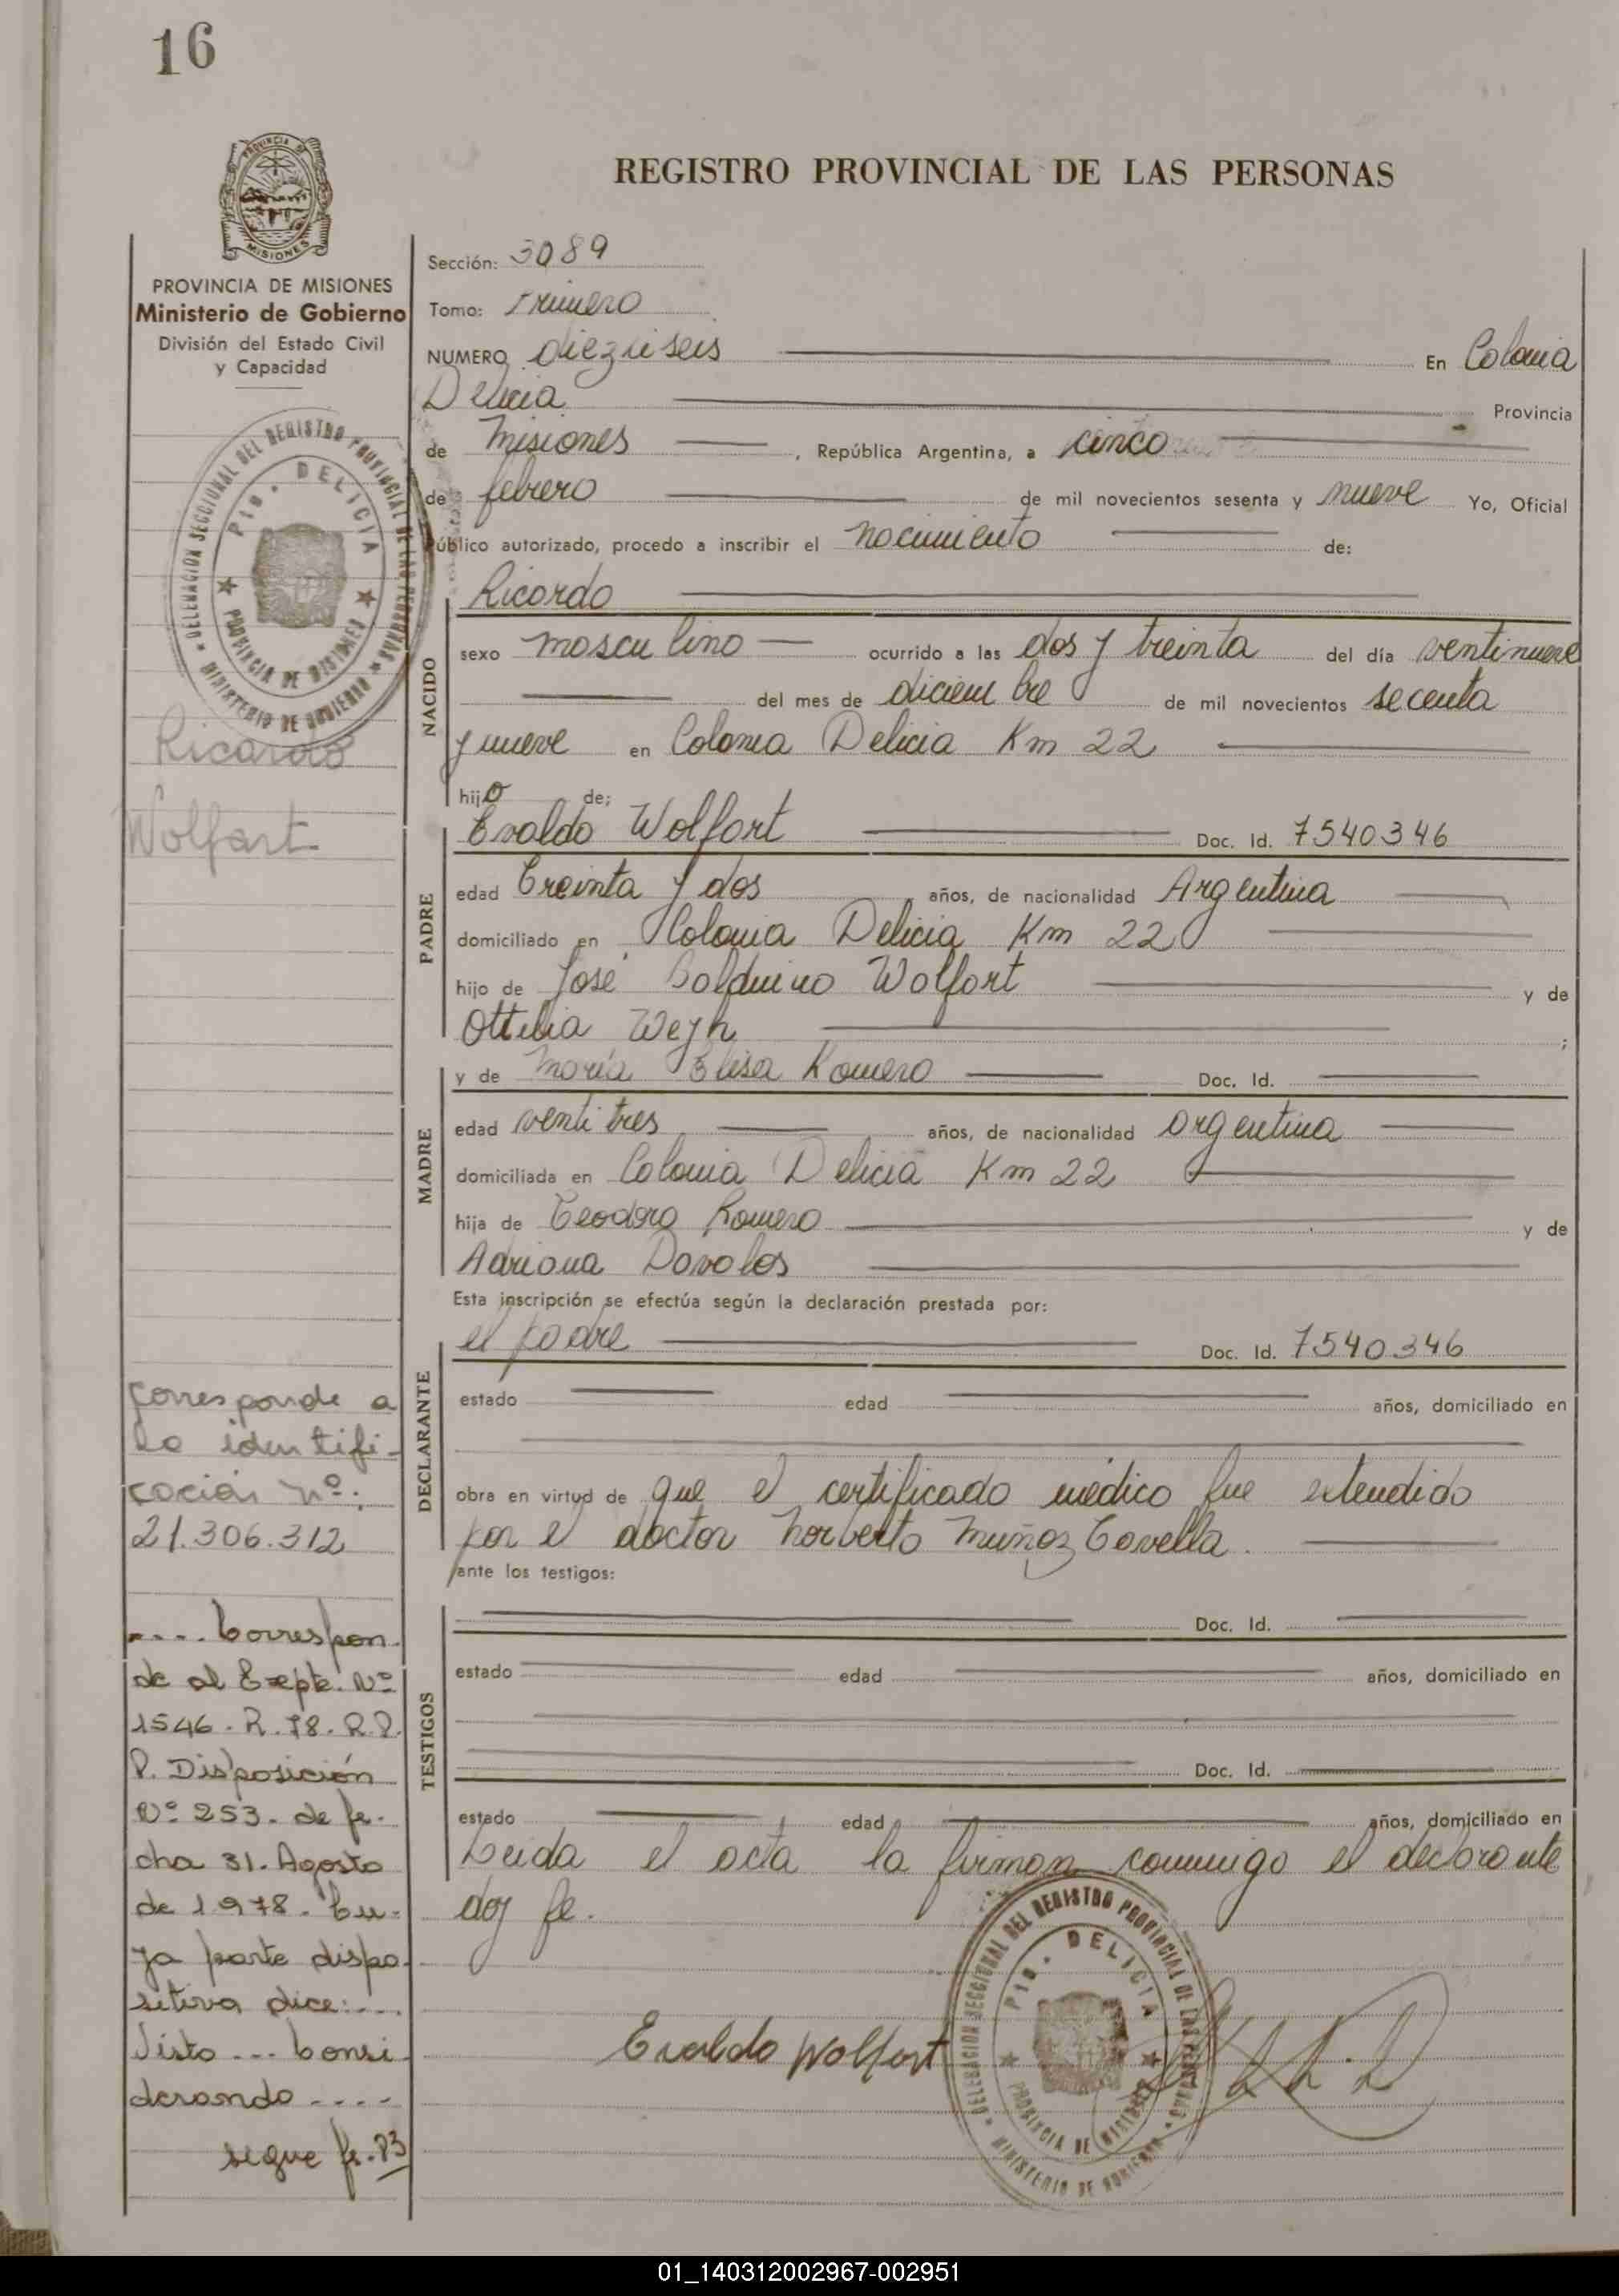 16
REGISTRO PROVINCIAL DE LAS PERSONAS
MISIONES
PROVINCIA DE MISIONES
Ministerio de Gobierno
División del Estado Civil
y Capacidad
DELEGACION SECCIONAL DEL REGISTRO PROVINCIAL DE LAS PERSONAS
PTO. DELICIA
PROVINCIA DE MISIONES
MINISTERIO DE GOBIERNO
Ricardo
Wolfart
Corresponde a
la identifi-
cación nº:
21.306.312
.... Correspon-
de al Expte. Nº
1546. R. 78. R.P.
P. Disposición
Nº 253. de fe-
cha 31. Agosto
de 1978. Cu-
ya parte dispo-
sitiva dice:...
Visto ... Consi-
derando ....
sigue fs. 83
Sección: 3089
Tomo: Primero
NUMERO diezuiseis En Colonia
Delicia Provincia
de Misiones , República Argentina, a cinco
de febrero de mil novecientos sesenta y nueve Yo, Oficial
Público autorizado, procedo a inscribir el nacimiento de:
NACIDO
Ricardo
sexo masculino ocurrido a las dos y treinta del día ventinueve
del mes de diciembre de mil novecientos secenta
y nueve en Colonia Delicia Km 22
hijo de;
PADRE
Evaldo Wolfart Doc. Id. 7540346
edad Treinta y dos años, de nacionalidad Argentina
domiciliado en Colonia Delicia Km 22
hijo de José Balduino Wolfart y de
Ottilia Weyh ;
MADRE
y de María Elisa Romero Doc. Id.
edad ventitres años, de nacionalidad argentina
domiciliada en Colonia Delicia Km 22
hija de Teodoro Romero y de
Adriana Davalos
Esta inscripción se efectúa según la declaración prestada por:
DECLARANTE
el padre Doc. Id. 7540346
estado edad años, domiciliado en
obra en virtud de que el certificado médico fue extendido
por el doctor Norberto Muñoz Covella.
ante los testigos:
TESTIGOS
Doc. Id.
estado edad años, domiciliado en
Doc. Id.
estado edad años, domiciliado en
Leida el acta la firman conmigo el declarante
doy fe.
Evaldo Wolfart
DELEGACION SECCIONAL DEL REGISTRO PROVINCIAL DE LAS PERSONAS
PTO. DELICIA
PROVINCIA DE MISIONES
MINISTERIO DE GOBIERNO
01_140312002967-002951